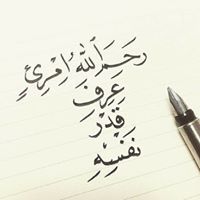 رَحِمَ ٱللهُ امْرِئٍ
عَرِفَ
قَدْرَ
نَفْسِهِ